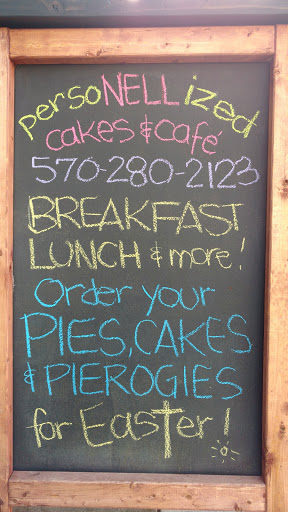 persoNELLized
cakes & café
570-280-2123
BREAKFAST
LUNCH & more!
Order your
PIES, CAKES
& PIEROGIES
for Easter!